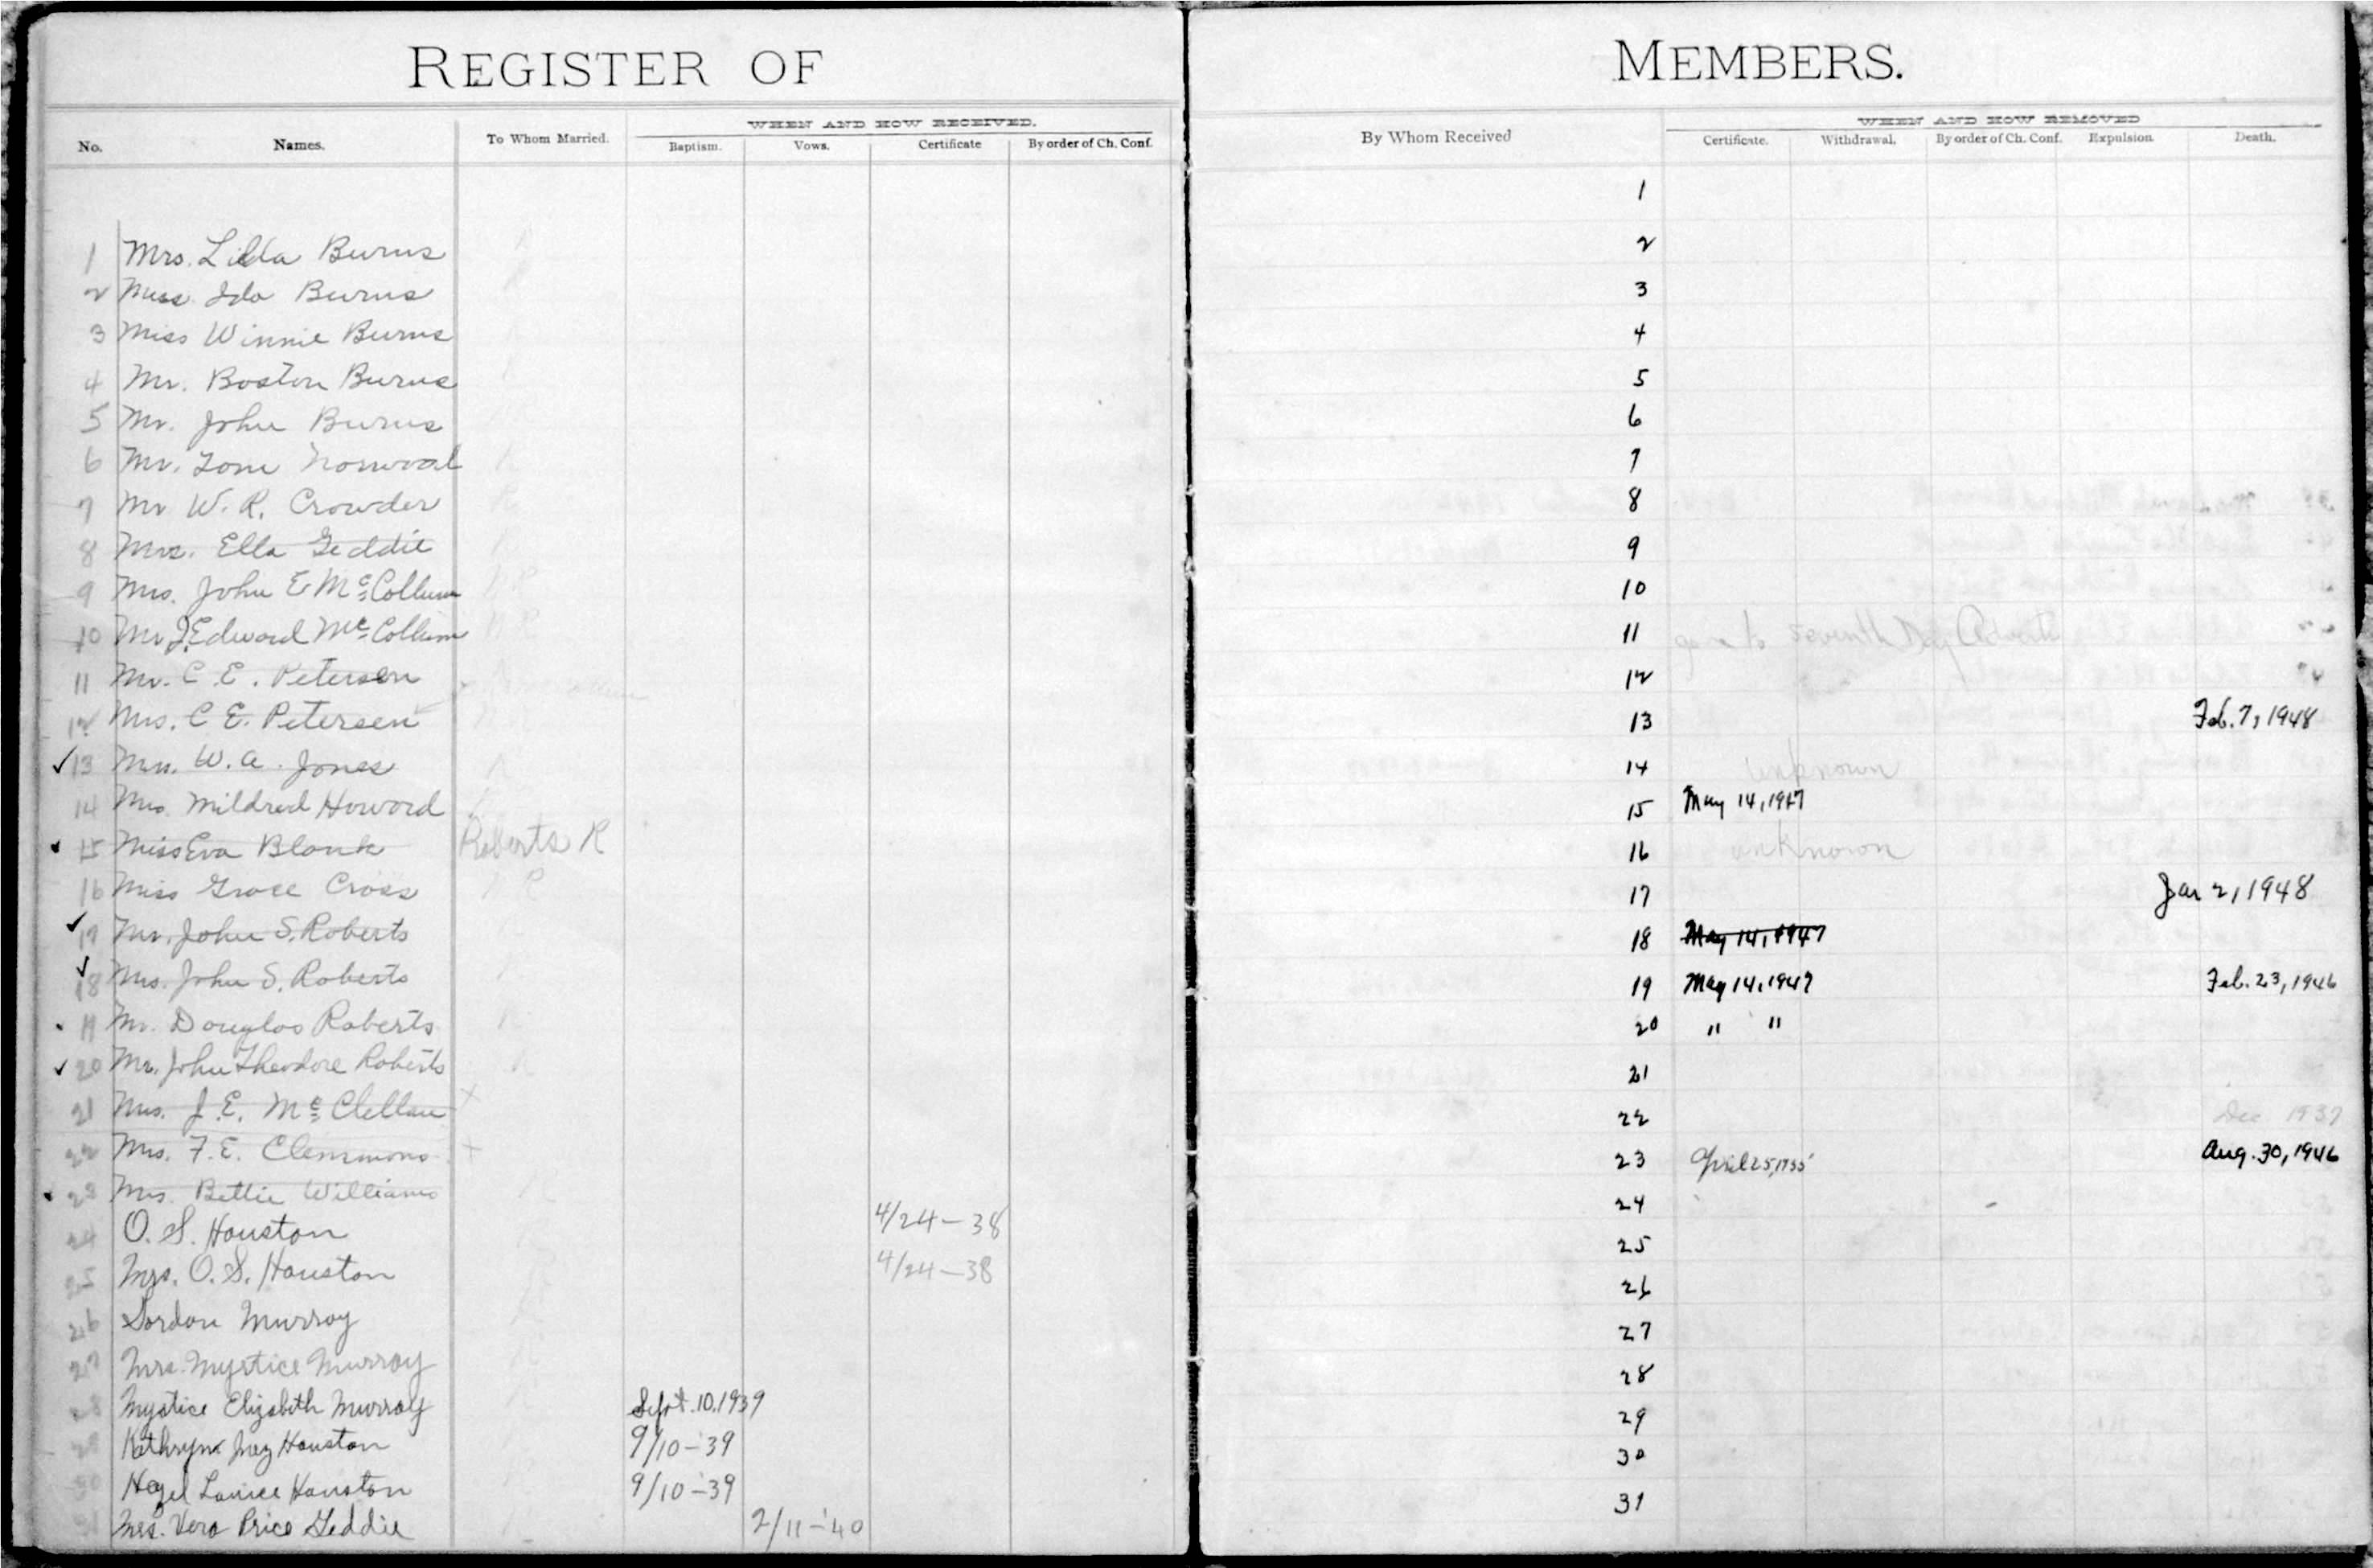 REGISTER OF
No. Names. To Whom Married. WHEN AND HOW RECEIVED.
Baptism. Vows. Certificate By order of Ch. Conf.
1 Mrs. Lilda Burns
2 Miss Ida Burns
3 Miss Winnie Burns
4 Mr. Boston Burns
5 Mr. John Burns
6 Mr. Tom Norwood
7 Mr W. R. Crowder
8 Mrs. Ella Geddie
9 Mrs. John E McCollum
10 Mr J. Edward McCollum
11 Mr. C. E. Petersen
12 Mrs. C E. Petersen
✓13 Mrs. W. A. Jones
14 Mrs. Mildred Howard
15 Miss Eva Blank Roberts R
16 Miss Grace Cross R
✓17 Mr. John S. Roberts
✓18 Mrs. John S. Roberts
19 Mr. Douglas Roberts
✓20 Mr. John Theodore Roberts
21 Mrs. J. E. McClellan x
22 Mrs. F. E. Clemmons x
23 Mrs. Bettie Williams
24 O. S. Houston 4/24-38
25 Mrs. O. S. Houston 4/24-38
26 Gordon Murray
27 Mrs. Myrtice Murray
28 Myrtice Elizabeth Murray Sept. 10, 1939
29 Kathryn Inez Houston 9/10-39
30 Hazel Lanice Houston 9/10-39
31 Mrs. Vera Price Geddie 2/11-'40
MEMBERS.
By Whom Received WHEN AND HOW REMOVED
Certificate. Withdrawal. By order of Ch. Conf. Expulsion Death.
1
2
3
4
5
6
7
8
9
10
11 gone to Seventh Day Advent
12
13 Feb. 7, 1948
14 unknown
15 May 14, 1947
16 unknown
17 Jan 2, 1948
18 May 14, 1947
19 May 14, 1947 Feb. 23, 1946
20 " "
21
22 Dec 1937
23 April 25, 1935 Aug. 30, 1946
24
25
26
27
28
29
30
31